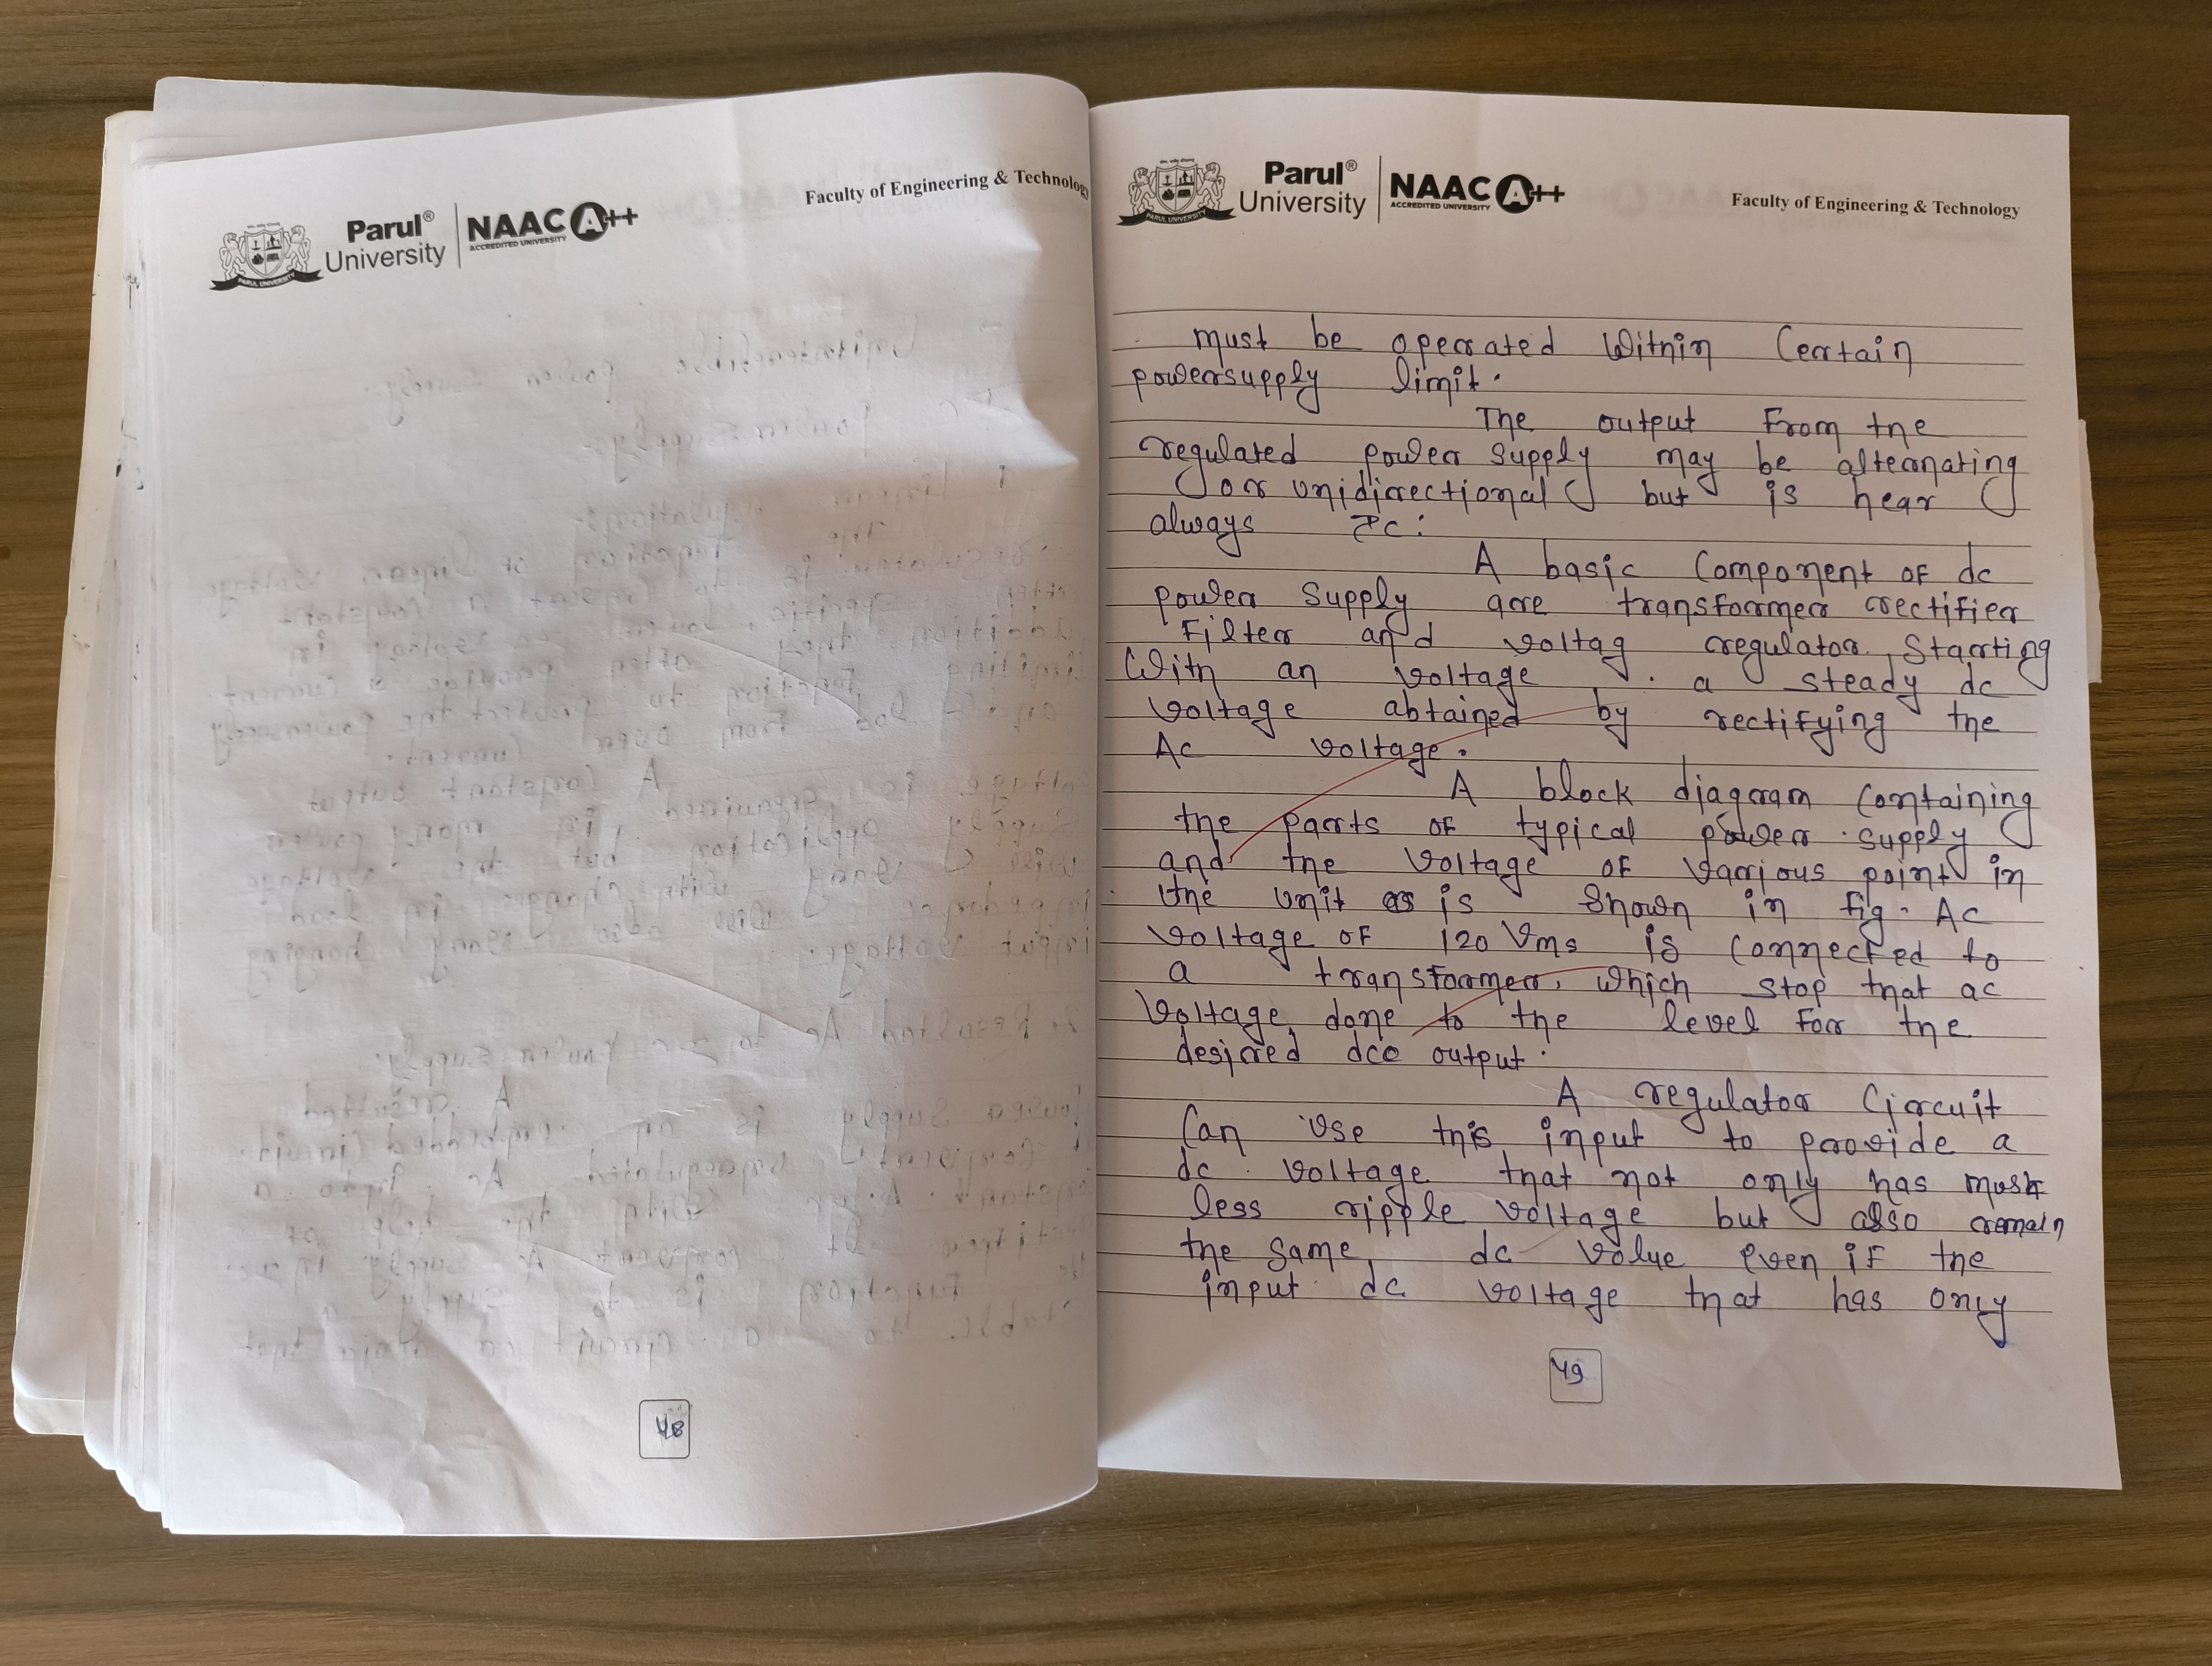 Parul®
University
NAAC A++
ACCREDITED UNIVERSITY
PARUL UNIVERSITY
Faculty of Engineering & Technology
48
Parul®
University
NAAC A++
ACCREDITED UNIVERSITY
PARUL UNIVERSITY
Faculty of Engineering & Technology
must be operated within Certain
powersupply limit.
The output From the
regulated power supply may be alternating
or unidirectional but is hear
always
A basic Component OF dc
power supply are transformer rectifier
Filter and voltag regulator, Starting
With an voltage. a steady dc
voltage abtained by rectifying the
Ac voltage.
A block diagram Containing
the parts OF typical power supply
and the voltage OF various point in
the unit as is shown in fig. AC
voltage OF 120 Vms is Connected to
a transformer, which stop that ac
voltage, done to the level For the
desired output.
A regulator Circuit
Can use this input to provide a
dc voltage that not only has
less ripple voltage but also remain
the same dc value even iF the
input dc voltage that has only
49